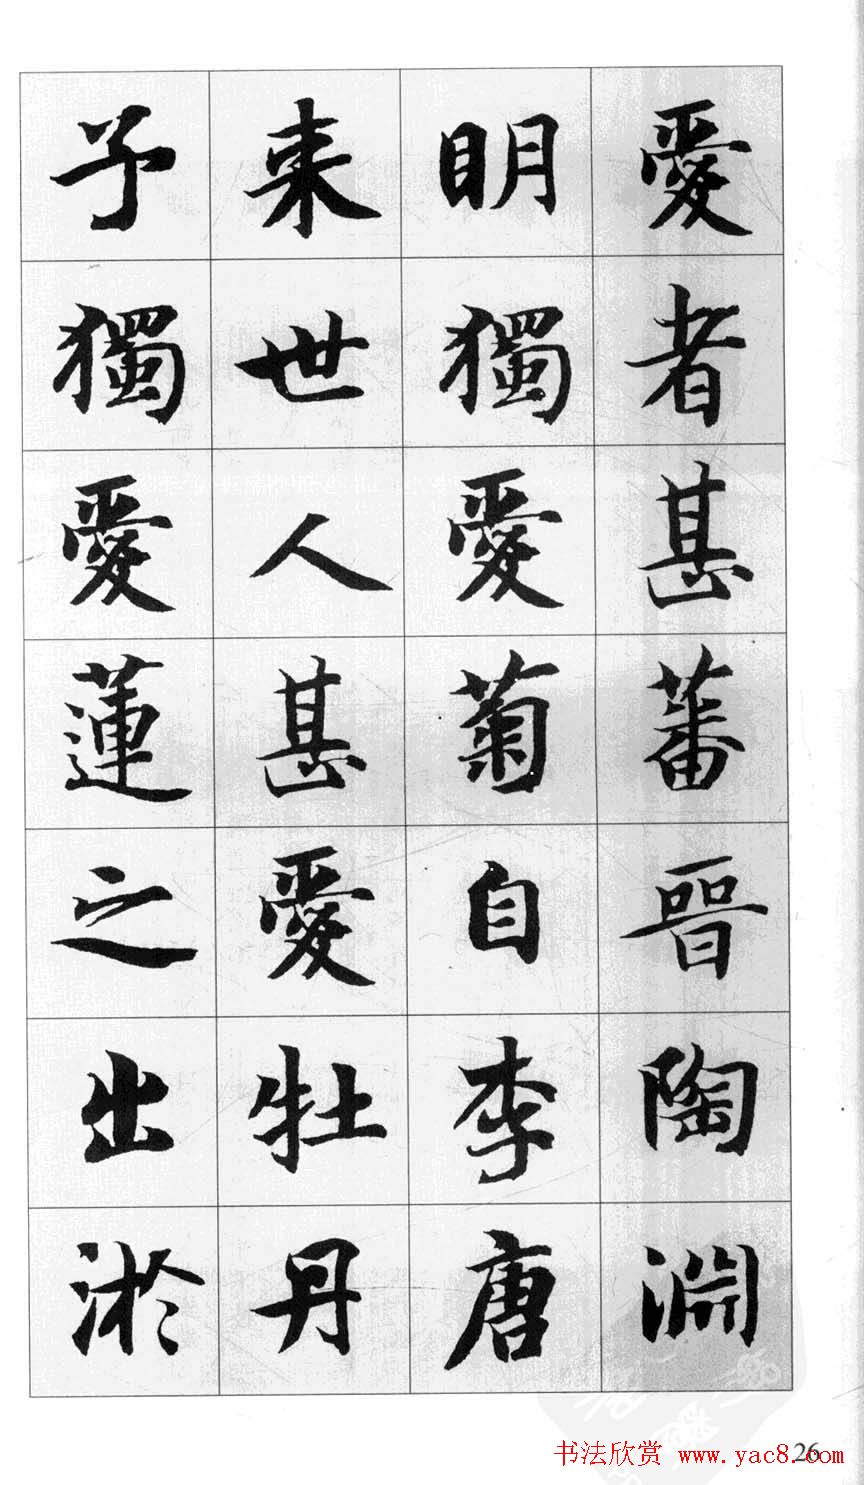 愛者甚蕃晉陶淵
明獨愛菊自李唐
来世人甚愛牡丹
予獨愛蓮之出淤
书法欣赏 www.yac8.com
26